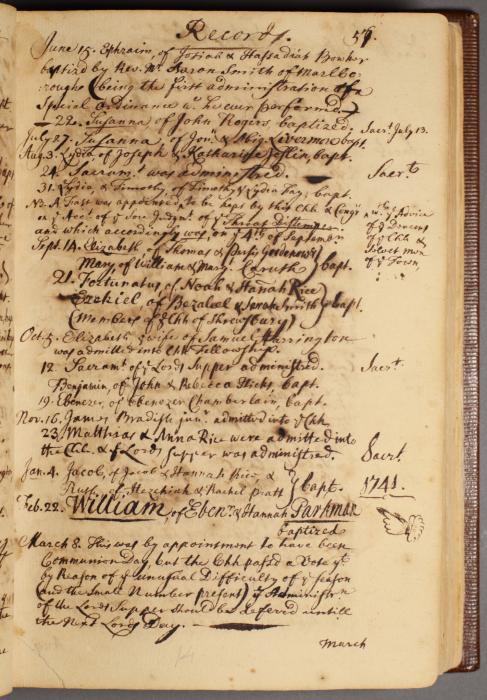 Records. 59.
June 15. Ephraim, of Josiah & Hassadiah Bowker
baptized by Rev. Mr. Aaron Smith of Marlbo-
rough (being the first administration of a
Special ordinance he ever performed.)
— 22. Susanna, of John Rogers, baptized.
Sacrt. July 13.
July 27. Susanna, of Jonn. & Abig. Livermore bapt.
Aug 3. Lydia, of Joseph & Katharine Joslin, bapt.
24. Sacramt. was administred.
Sacrt.
31. Lydia, & Timothy, of Timothy & Lydia Fay, bapt.
N.B. A Fast was appointed to be kept by this Chh. & Congn
on ye Acct. of ye sore Judgmt. of ye Throat Distemper
and which accordingly was, on ye 4th of September
wth ye Advice
of ye Deacons
of ye Chh &
Select men
of ye Town
Sept. 14. Elizabeth of Thomas &
Mary, of William & Mary Caruth } bapt.
21. Fortunatus of Noah & Hanah Rice
Ezekiel of Bezaleel & Sarah Smith } bapt.
(Members of ye Chh of Shrewsbury)
Oct. 5. Elizabeth ye wife of Samuel Harrington
was admitted into Chh Fellowship.
12. Sacramt. of ye Lords Supper administred.
Sacrt.
Benjamin, of John & Rebecca Hicks, bapt.
19. Ebenezer, of Ebenezer Chamberlain, bapt.
Nov. 16. James Bradish junr. admitted into ye Chh
23. Matthias & Anna Rice were admitted into
the Chh. & ye Lords Supper was administred.
Sacrt.
Jan. 4. Jacob, of Jacob & Hannah Rice &
Ruth, of Hezekiah & Rachel Pratt } bapt.
1741.
Feb. 22. William, of Ebenr. & Hannah Parkman
baptized
March 8. This was by appointment to have been
Communion Day, but the Chh passd a Vote yt
by Reason of ye unusual Difficulty of ye Season
(and the Small Number present) ye Administrn
of the Lords Supper should be deferred untill
the Next Lords Day.
March